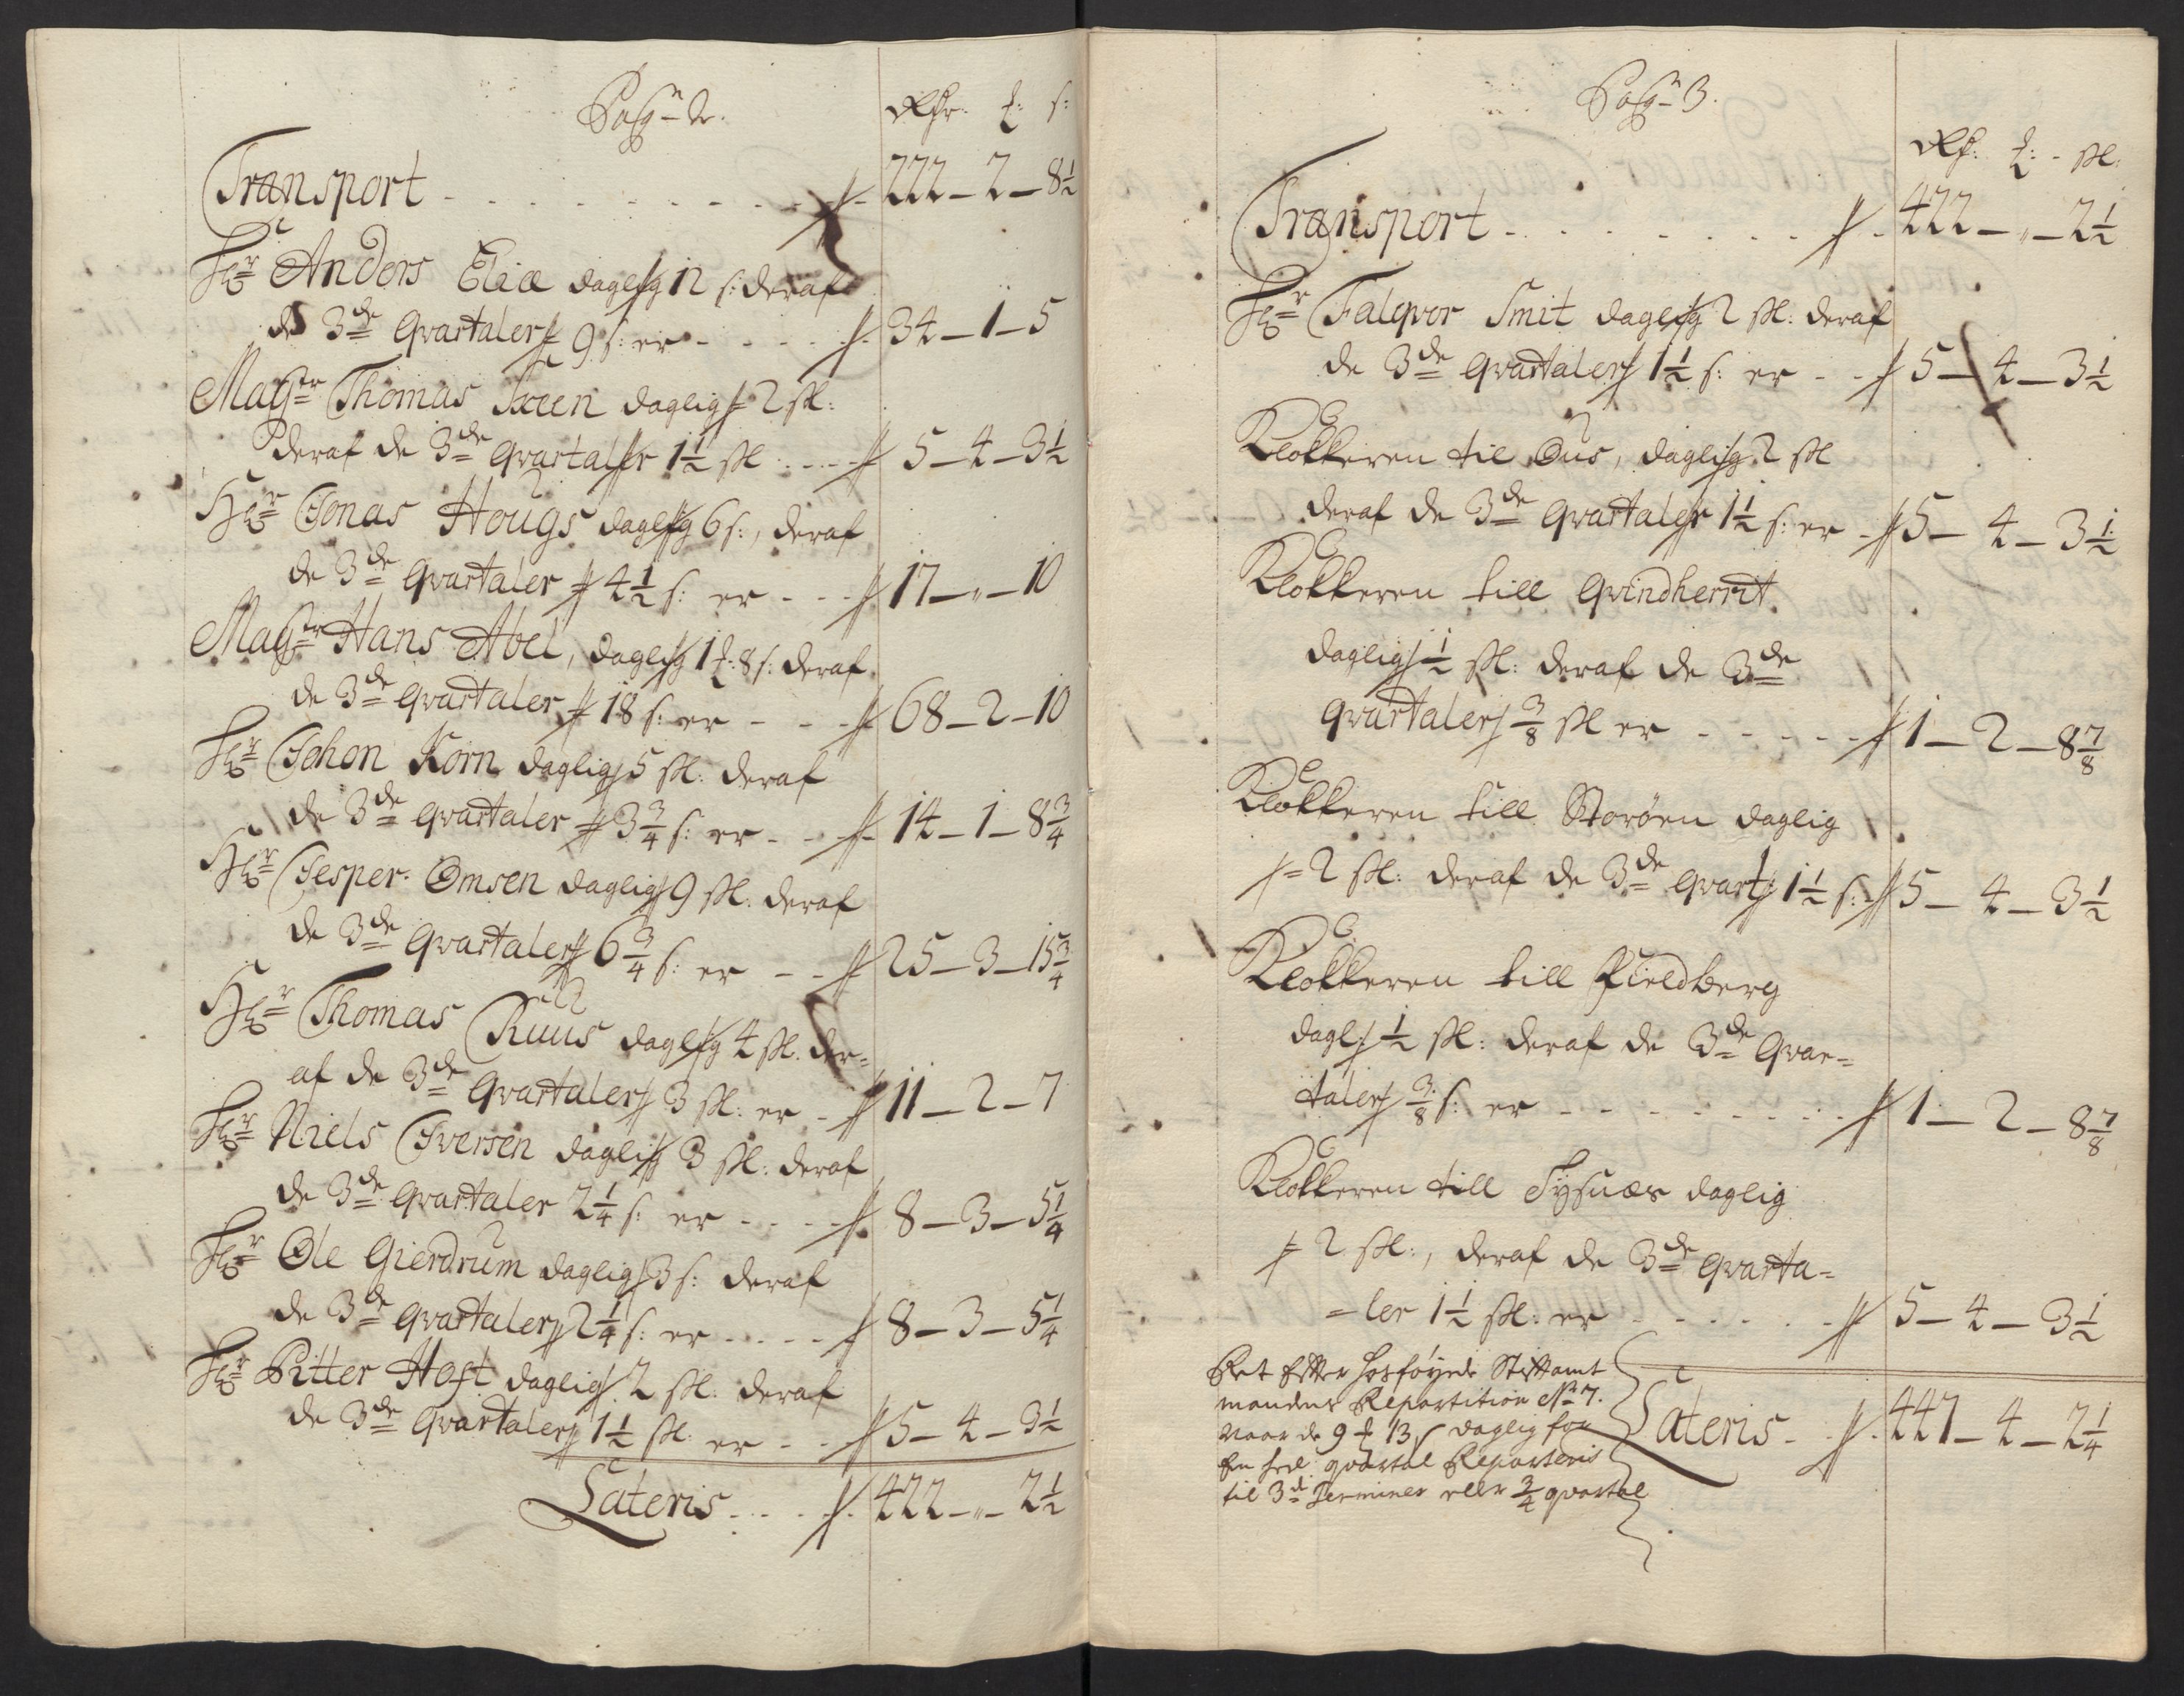 Pag: 2.
Rdr. ₰: s:
Transport - - - - - - - - - 222 - 2 - 8½
Hr Anders Eliæ daglig 12 s: deraf
de 3de Qvartaler 9 s: er - - - - 34 - 1 - 5
Magr Thomas daglig 2 sk:
deraf de 3de Qvartaler 1½ sk: - - - 5 - 4 - 3½
Hr Jonas Hougs daglig 6 s:, deraf
de 3de Qvartaler 4½ s: er - - - 17 - „ - 10
Magr Hans Abel, daglig 1 ₰: 8 s: deraf
de 3de Qvartaler 18 s: er - - - 68 - 2 - 10
Hr Johon Korn daglig 5 sk: deraf
de 3de Qvartaler 3¾ s: er - - 14 - 1 - 8¾
Hr Jesper Omsen daglig 9 sk. deraf
de 3de Qvartaler 6¾ s: er - - 25 - 3 - 15¾
Hr Thomas Ruus daglig 4 sk. der=
af de 3de Qvartaler 3 sk: er - 11 - 2 - 7
Hr Niels Iversen daglig 3 sk: deraf
de 3de Qvartaler 2¼ s: er - - - - 8 - 3 - 5¼
Hr Ole Gierdrum daglig 3 s: deraf
de 3de Qvartaler 2¼ s: er - - - - 8 - 3 - 5¼
Hr Pitter Host daglig 2 sk: deraf
de 3de Qvartaler 1½ sk: er - - 5 - 4 - 3½
Lateris - - - - 422 - „ - 2½
Pag: 3.
Rd: ₰: - sk:
Transport - - - - - - - - 422 - „ - 2½
Hr Falqvor Smit daglig 2 sk: deraf
de 3de Qvartaler 1½ s: er - - 5 - 4 - 3½
Klokkeren til Ous, daglig 2 sk
deraf de 3de Qvartaler 1½ s: er - 5 - 4 - 3½
Klokkeren till Qvindherrit
daglig ½ sk: deraf de 3de
Qvartaler ⅜ sk er - - - - - 1 - 2 - 8⅞
Klokkeren till Storöen daglig
2 sk: deraf de 3de Qvart 1½ s: 5 - 4 - 3½
Klokkeren till Fieldberg
dagl: ½ sk: deraf de 3de Qvar=
taler ⅜ s: er - - - - - - - - 1 - 2 - 8⅞
Klokkeren till Tysnæs daglig
2 sk:, deraf de 3de Qvarta=
=ler 1½ sk: er - - - - - - 5 - 4 - 3½
Det Efter hosföyede Stiftamt
mandens Repartition No 7.
naar de 9 ₰ 13 s daglig for
En heel qvartal Reparteris
til 3de Terminer eller ¾ qvartal
Lateris - - 447 - 4 - 2¼